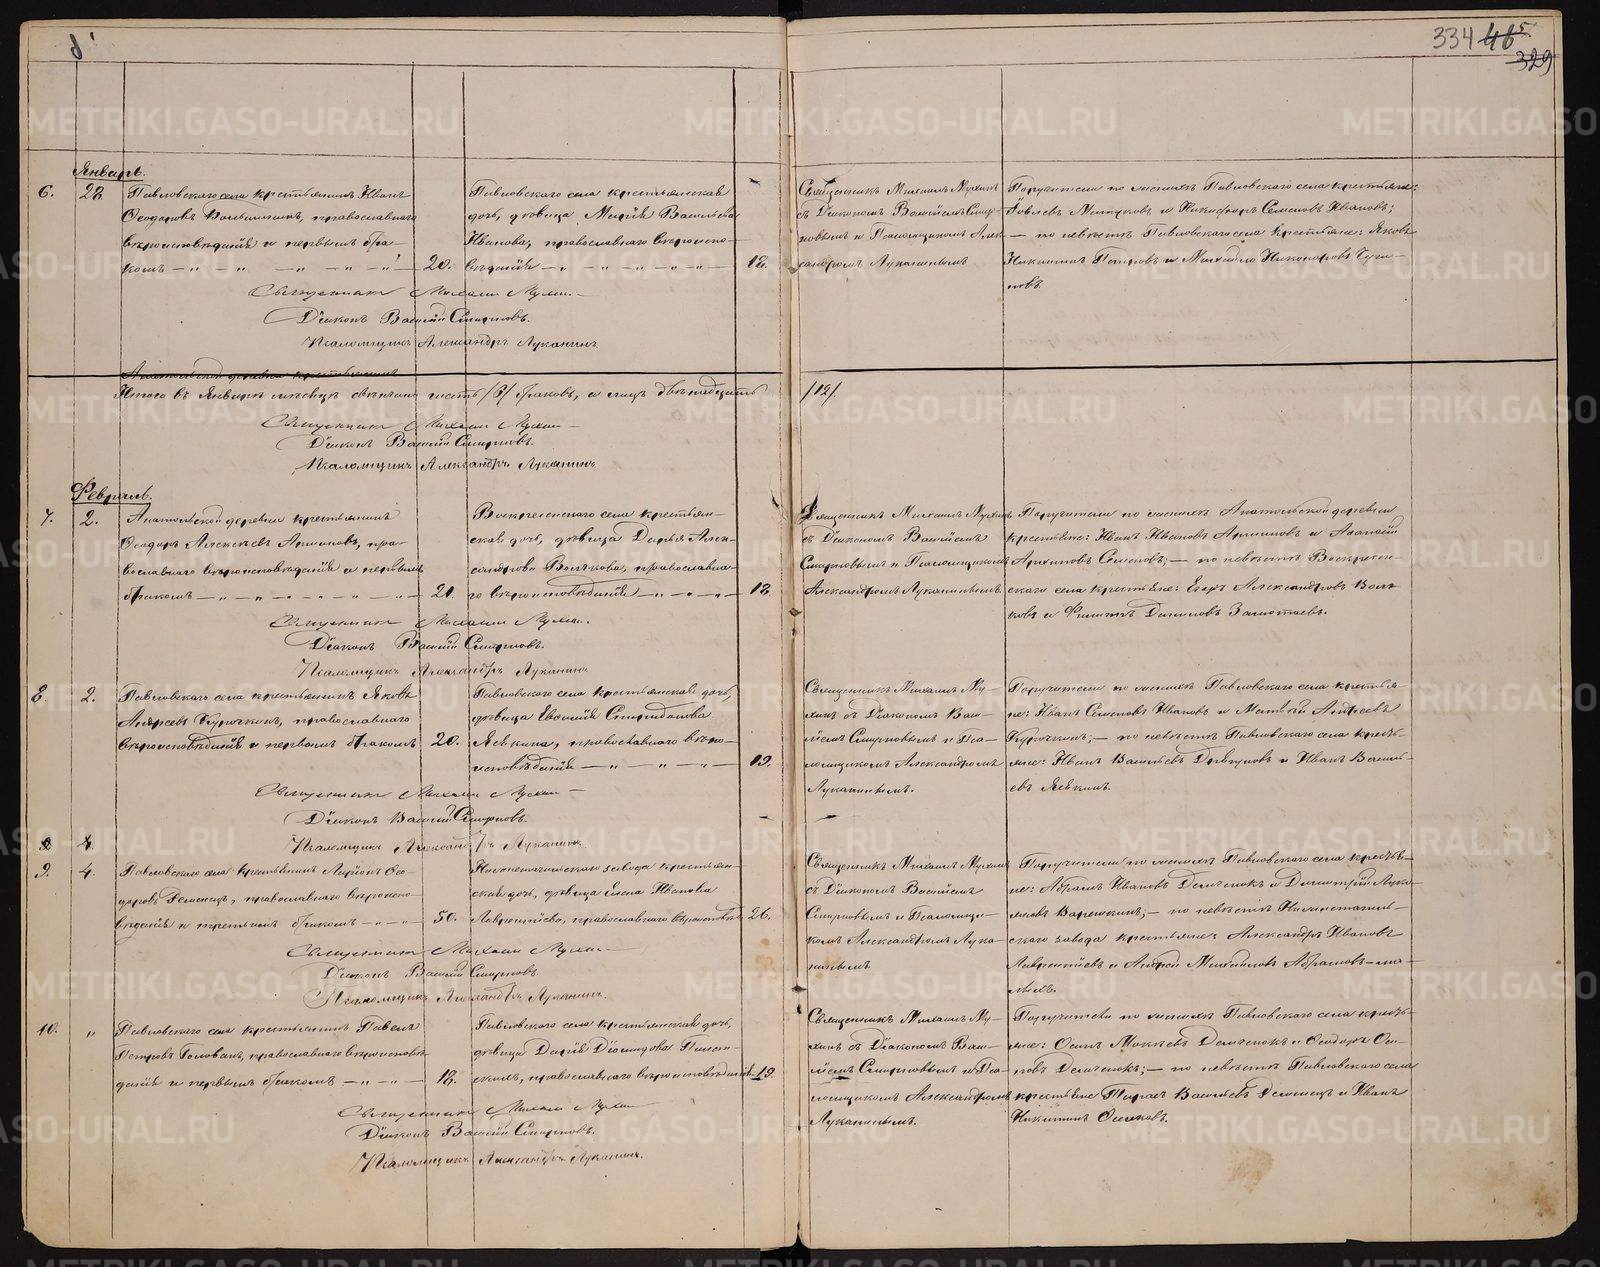 334 465
329
Январь.
6.
28.
Павловскаго села крестьянинъ Иванъ
Ѳеодоровъ православнаго
вѣроисповѣданія и первымъ бра-
комъ
20.
Павловскаго села крестьянская
дочь, дѣвица Марія Васильева
Иванова, православнаго вѣроиспо-
вѣданія
18.
Священникъ Михаилъ Мухинъ
съ Діакономъ Василіемъ Смир-
новымъ и Псаломщикомъ Алек-
сандромъ Луканинымъ
Поручители по женихѣ Павловскаго села крестьяне:
и Никифоръ Семеновъ Ивановъ;
— по невѣстѣ Павловскаго села крестьяне: Яковъ
Никитинъ Петровъ и Михаилъ Никаноровъ Чугу-
новъ.
Священникъ Михаилъ Мухинъ
Діаконъ Василій Смирновъ.
Псаломщикъ Александръ Луканинъ
Анатольской деревни крестьянинъ
Итого въ Январѣ мѣсяцѣ шесть /6/ браковъ, а лицъ двѣнадцать /12/.
Священникъ Михаилъ Мухинъ
Діаконъ Василій Смирновъ.
Псаломщикъ Александръ Луканинъ
Февраль.
7.
2.
Анатольской деревни крестьянинъ
Ѳеодоръ Алексѣевъ пра-
вославнаго вѣроисповѣданія и первымъ
бракомъ
21.
Воскресенскаго села крестьян-
ская дочь, дѣвица Дарья Алек-
сандрова Волкова, православна-
го вѣроисповѣданія
18.
Священникъ Михаилъ Мухинъ
съ Діакономъ Василіемъ
Смирновымъ и Псаломщикомъ
Александромъ Луканинымъ
Поручители по женихѣ Анатольской деревни
крестьяне: Иванъ Ивановъ и
Архиповъ Семеновъ; — по невѣстѣ Воскресен-
скаго села крестьяне: Егоръ Александровъ Вол-
ковъ и Даниловъ
Священникъ Михаилъ Мухинъ.
Діаконъ Василій Смирновъ.
Псаломщикъ Александръ Луканинъ
8.
2.
Павловскаго села крестьянинъ Яковъ
Андреевъ Курочкинъ, православнаго
вѣроисповѣданія и первымъ бракомъ
20.
Павловскаго села крестьянская дочь,
дѣвица Евдокія Спиридонова
православнаго вѣро-
исповѣданія
19.
Священникъ Михаилъ Му-
хинъ съ Діакономъ Васи-
ліемъ Смирновымъ и Пса-
ломщикомъ Александромъ
Луканинымъ.
Поручители по женихѣ Павловскаго села крестья-
не: Иванъ Семеновъ Ивановъ и Матвѣй Андреевъ
Курочкинъ; — по невѣстѣ Павловскаго села кресть-
яне: Иванъ Васильевъ и Иванъ Василь-
евъ
Священникъ Михаилъ Мухинъ
Діаконъ Василій Смирновъ.
Псаломщикъ Александръ Луканинъ.
9.
4.
Павловскаго села крестьянинъ Ѳео-
доровъ Деменецъ, православнаго вѣроиспо-
вѣданія и третьимъ бракомъ
50.
Нижнетагильскаго завода крестьян-
ская дочь, дѣвица Елена Иванова
Лаврентіева, православнаго
26.
Священникъ Михаилъ Мухинъ
съ Діакономъ Василіемъ
Смирновымъ и Псаломщи-
комъ Александромъ Лука-
нинымъ
Поручители по женихѣ Павловскаго села крестья-
не: Абрамъ Ивановъ Демченокъ и Димитрій Лука-
яновъ Варежкинъ; — по невѣстѣ Нижнетагиль-
скаго завода крестьяне: Александръ Ивановъ
Лаврентіевъ и Андрей Михайловъ
Священникъ Михаилъ Мухинъ
Діаконъ Василій Смирновъ
Псаломщикъ Александръ Луканинъ.
10.
"
Павловскаго села крестьянинъ Павелъ
Петровъ Голованъ, православнаго вѣроисповѣ-
данія и первымъ бракомъ
18.
Павловскаго села крестьянская дочь,
дѣвица Дарія Діомидова
православнаго вѣроисповѣданія
19.
Священникъ Михаилъ Му-
хинъ съ Діакономъ Васи-
ліемъ Смирновымъ и Пса-
ломщикомъ Александромъ
Луканинымъ.
Поручители по женихѣ Павловскаго села кресть-
яне: Осипъ Демченокъ и Ѳеодоръ Оси-
повъ Демченокъ; — по невѣстѣ Павловскаго села
крестьяне Тарасъ Васильевъ Деменецъ и Иванъ
Никитинъ
Священникъ Михаилъ Мухинъ
Діаконъ Василій Смирновъ.
Псаломщикъ Александръ Луканинъ.
METRIKI.GASO-URAL.RU